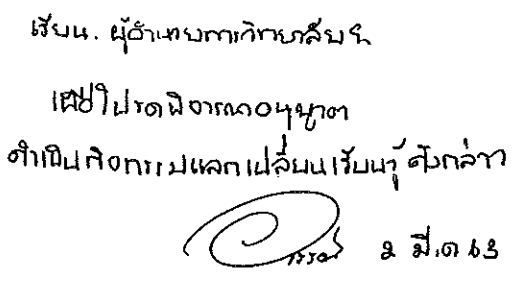 เรียน. ผู้อำนวยการวิทยาลัยฯ
เพื่อโปรดพิจารณาอนุญาต
ดำเนินกิจกรรมแลกเปลี่ยนเรียนรู้ ดังกล่าว
2 มี.ค 63